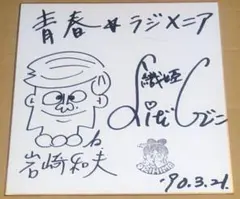 青春★ラジメニア
織姫
岩崎和夫
'90.3.21.